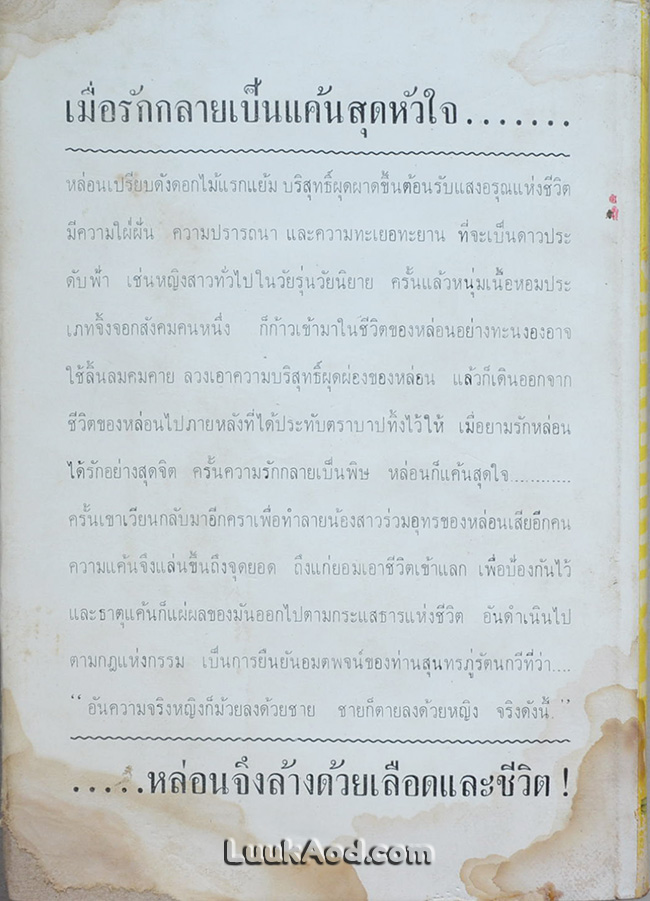 เมื่อรักกลายเป็นแค้นสุดหัวใจ.......
หล่อนเปรียบดังดอกไม้แรกแย้ม บริสุทธิ์ผุดผาดขึ้นต้อนรับแสงอรุณแห่งชีวิต
มีความใฝ่ฝัน ความปรารถนา และความทะเยอทะยาน ที่จะเป็นดาวประ
ดับฟ้า เช่นหญิงสาวทั่วไปในวัยรุ่นวัยนิยาย ครั้นแล้วหนุ่มเนื้อหอมประ
เภทจิ้งจอกสังคมคนหนึ่ง ก็ก้าวเข้ามาในชีวิตของหล่อนอย่างทะนงองอาจ
ใช้ลิ้นลมคมคาย ลวงเอาความบริสุทธิ์ผุดผ่องของหล่อน แล้วก็เดินออกจาก
ชีวิตของหล่อนไปภายหลังที่ได้ประทับตราบาปทิ้งไว้ให้ เมื่อยามรักหล่อน
ได้รักอย่างสุดจิต ครั้นความรักกลายเป็นพิษ หล่อนก็แค้นสุดใจ............
ครั้นเขาเวียนกลับมาอีกคราเพื่อทำลายน้องสาวร่วมอุทรของหล่อนเสียอีกคน
ความแค้นจึงแล่นขึ้นถึงจุดยอด ถึงแก่ยอมเอาชีวิตเข้าแลก เพื่อป้องกันไว้
และธาตุแค้นก็แผ่ผลของมันออกไปตามกระแสธารแห่งชีวิต อันดำเนินไป
ตามกฎแห่งกรรม เป็นการยืนยันอมตพจน์ของท่านสุนทรภู่รัตนกวีที่ว่า....
“อันความจริงหญิงก็ม้วยลงด้วยชาย ชายก็ตายลงด้วยหญิง จริงดังนี้.”
.....หล่อนจึงล้างด้วยเลือดและชีวิต!
LuukAod.com